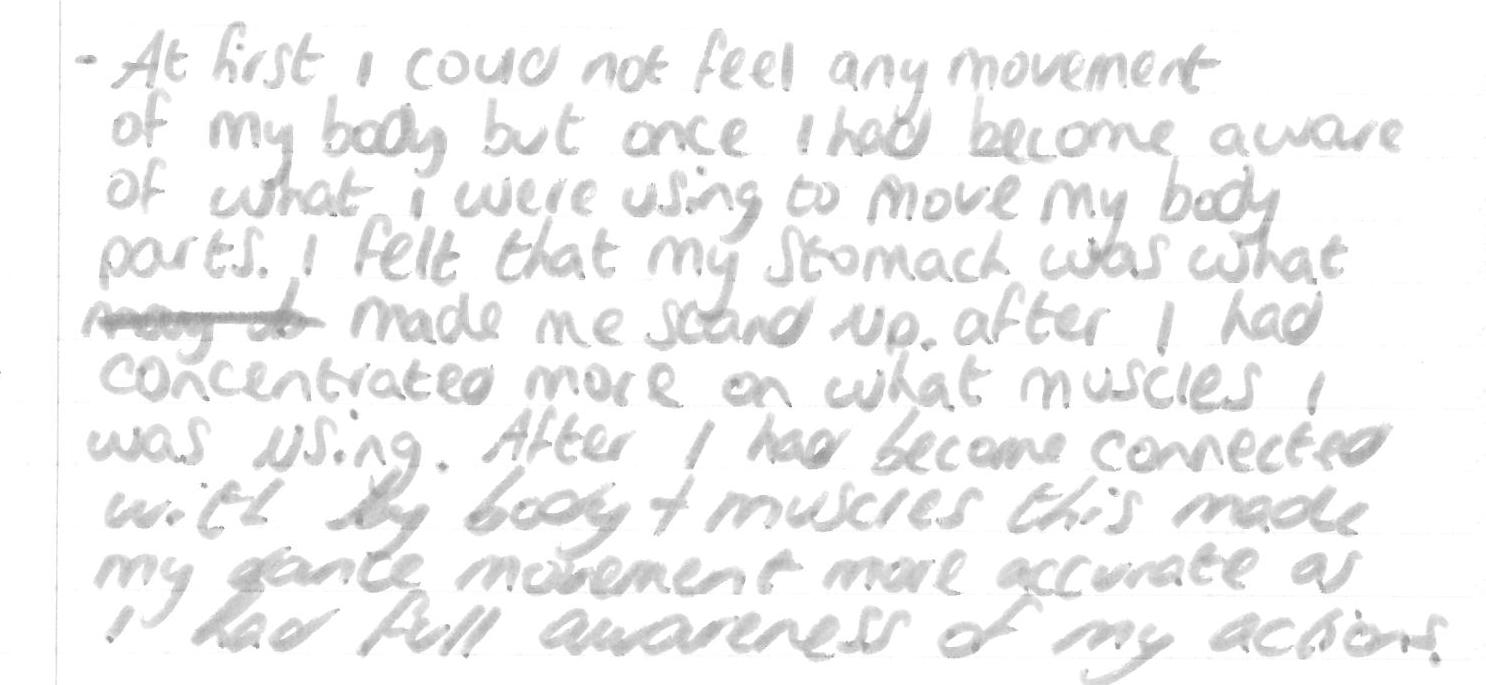 - At first I could not feel any movement
of my body but once I had become aware
of what I were using to move my body
parts. I felt that my stomach was what
made me stand up. after I had
concentrated more on what muscles I
was using. After I had become connected
with by body + muscles this made
my dance movement more accurate as
I had full awareness of my actions.